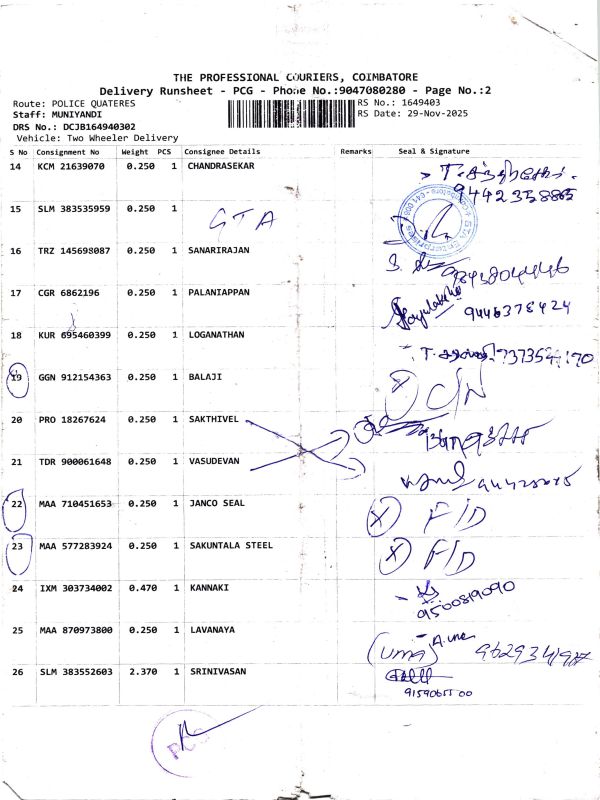 THE PROFESSIONAL COURIERS, COIMBATORE
Delivery Runsheet - PCG - Phone No.:9047080280 - Page No.:2
Route: POLICE QUATERES RS No.: 1649403
Staff: MUNIYANDI RS Date: 29-Nov-2025
DRS No.: DCJB164940302
Vehicle: Two Wheeler Delivery
S No Consignment No Weight PCS Consignee Details Remarks Seal & Signature
14 KCM 21639070 0.250 1 CHANDRASEKAR
15 SLM 383535959 0.250 1 GTA
16 TRZ 145698087 0.250 1 SANARIRAJAN
17 CGR 6862196 0.250 1 PALANIAPPAN 9446378424
18 KUR 695460399 0.250 1 LOGANATHAN
19 GGN 912154363 0.250 1 BALAJI X C/N
20 PRO 18267624 0.250 1 SAKTHIVEL
21 TDR 900061648 0.250 1 VASUDEVAN
22 MAA 710451653 0.250 1 JANCO SEAL X F/D
23 MAA 577283924 0.250 1 SAKUNTALA STEEL X F/D
24 IXM 303734002 0.470 1 KANNAKI
9500819090
25 MAA 870973800 0.250 1 LAVANAYA
(UMA)
26 SLM 383552603 2.370 1 SRINIVASAN
PCG